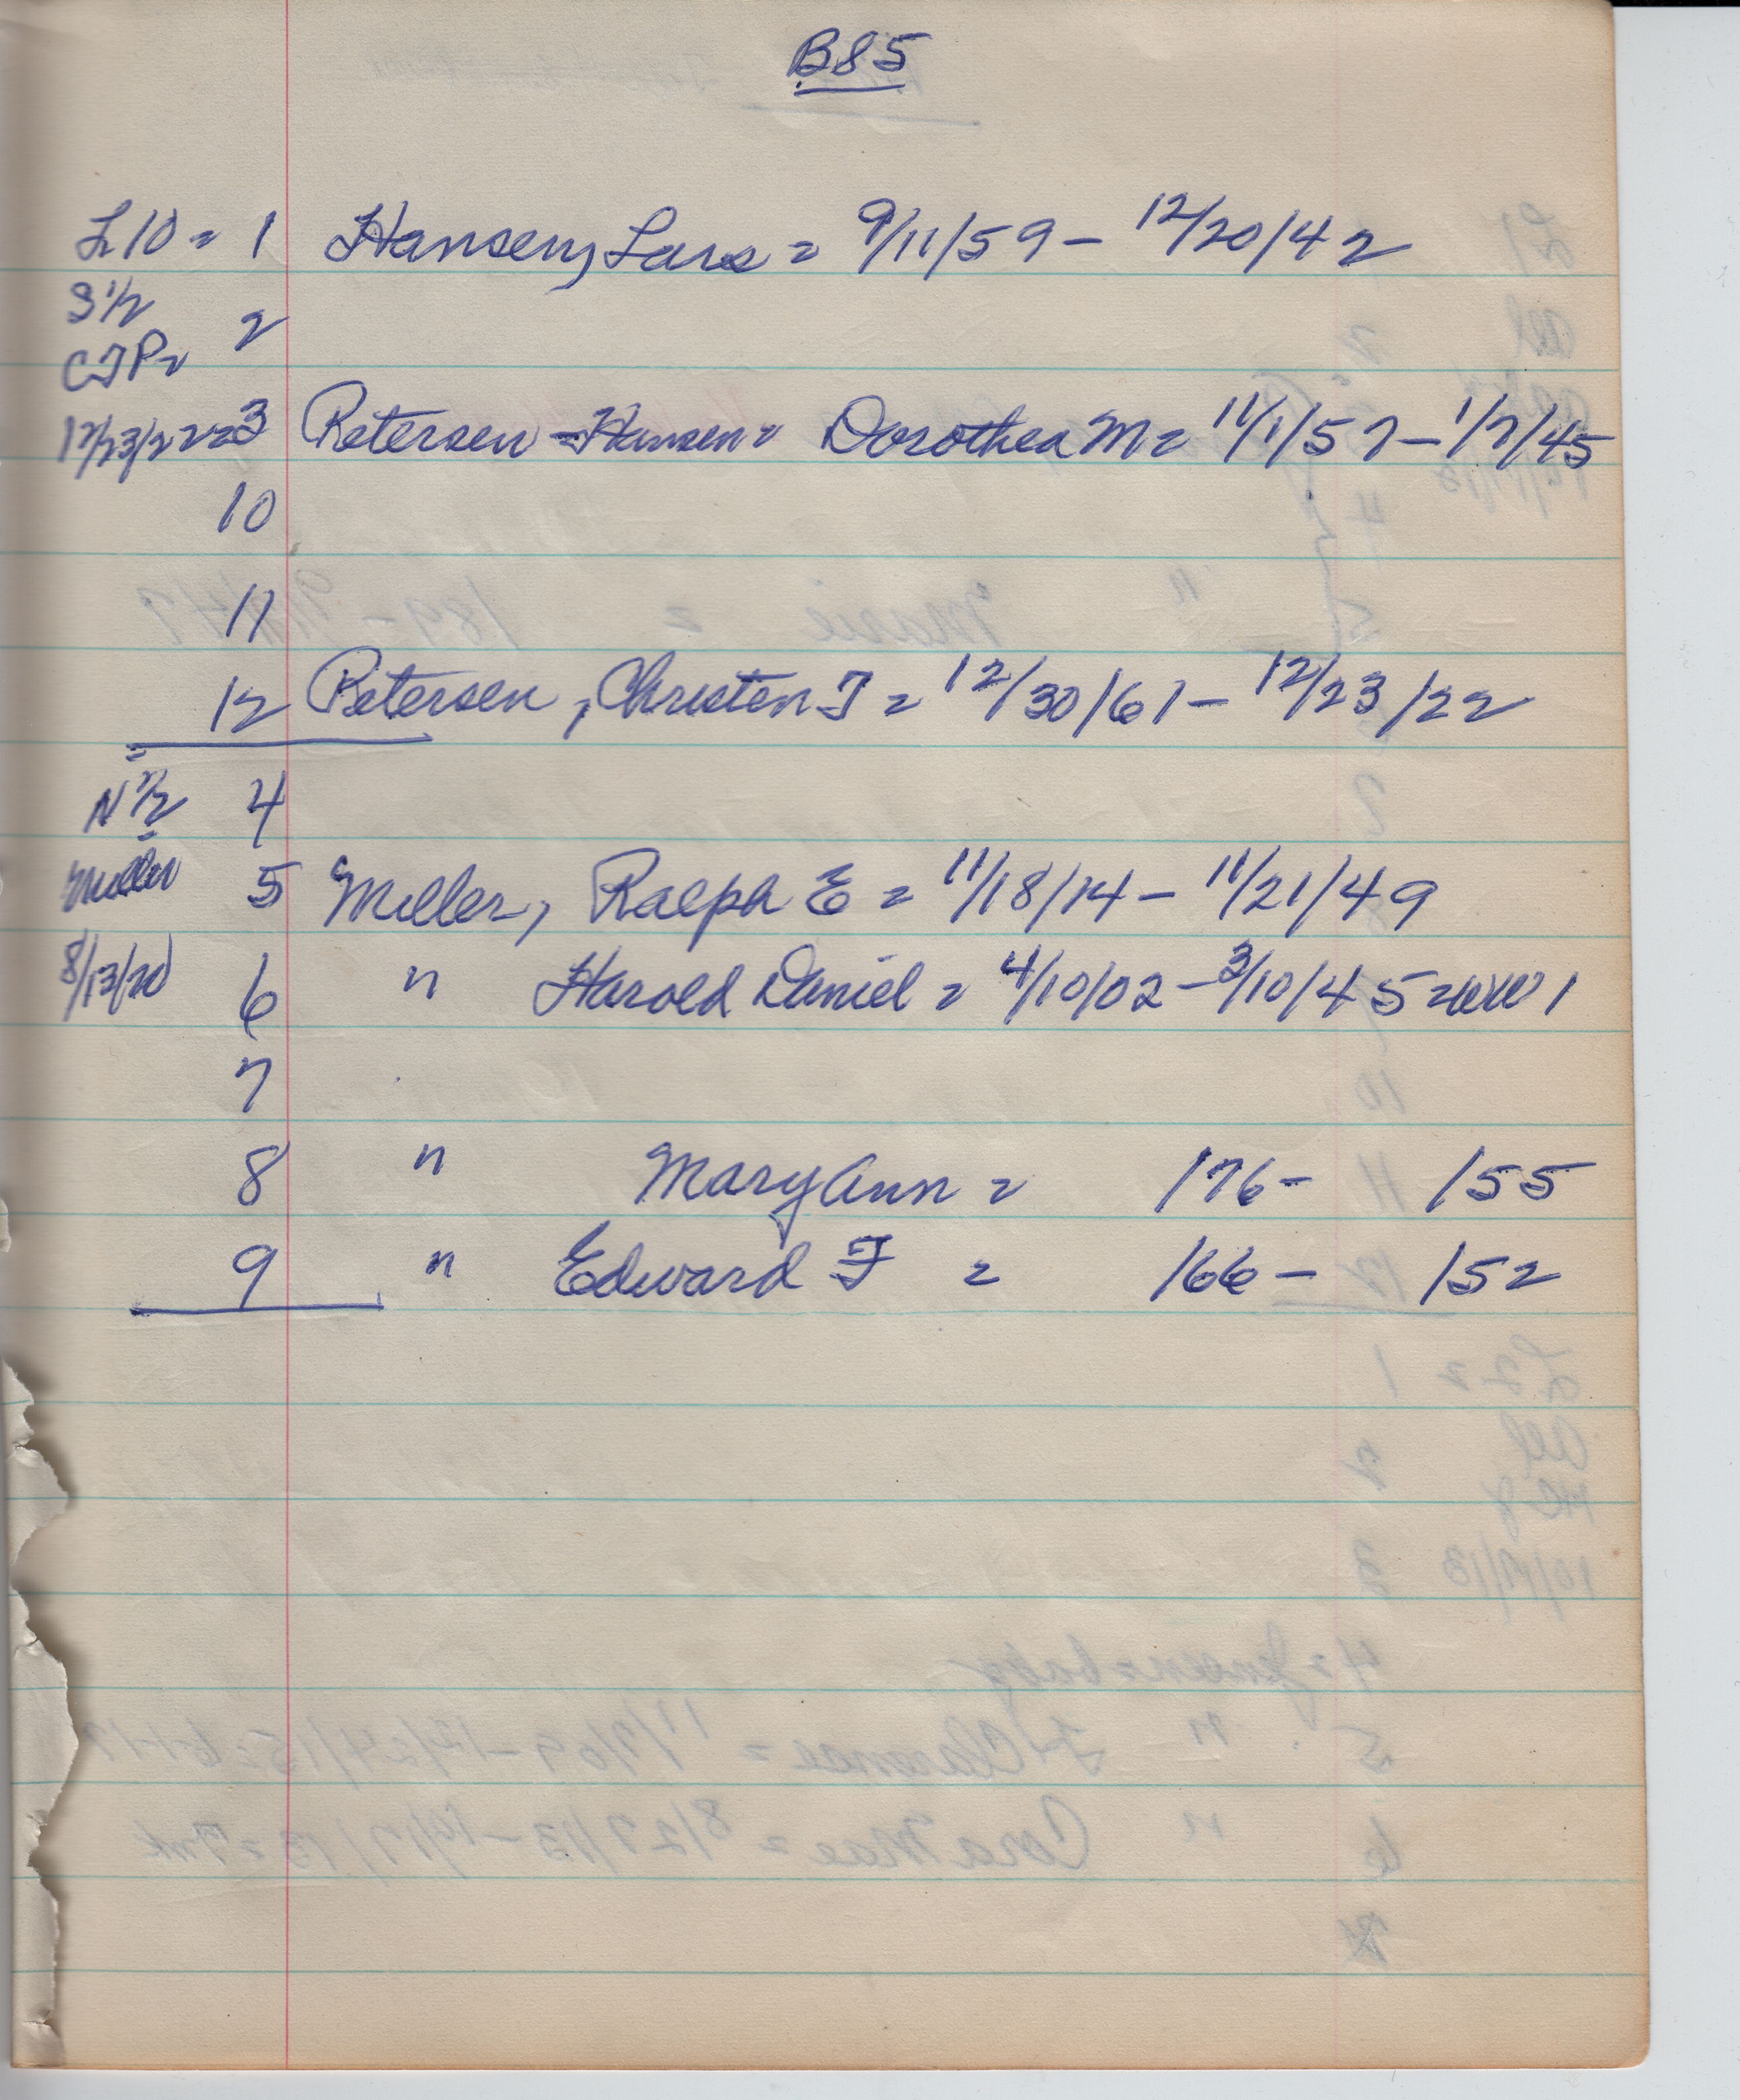 B85
L10 = 1 Hansen, Lars = 9/11/59 - 12/20/42
S 1/2
2
CJP =
12/23/22 = 3 Petersen = Hansen = Dorothea M = 11/1/57 - 1/7/45
10
11
12 Petersen, Christen J = 12/30/61 - 12/23/22
=
N 1/2 4
Miller 5 Miller, Ralph E = 11/18/14 - 11/21/49
8/13/20 6 " Harold Daniel = 4/10/02 - 3/10/45 = WW 1
7
8 " Mary Ann = /76 - /55
9 " Edward F = /66 - /52